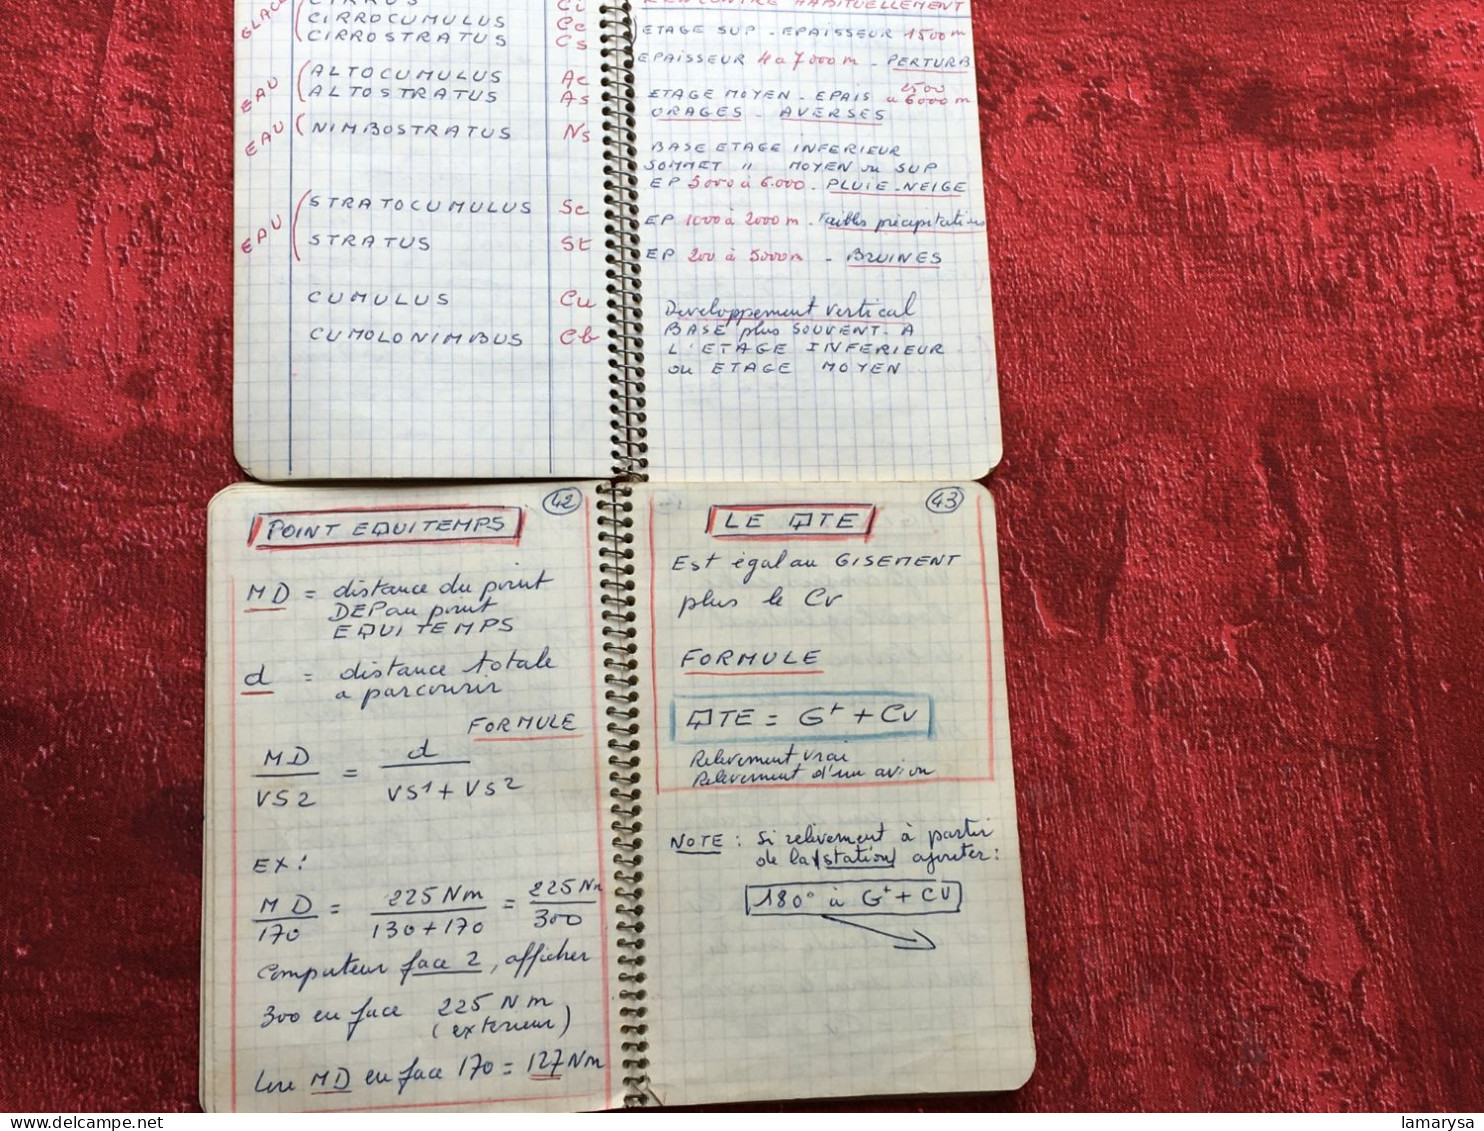 GLACE
CIRRUS Ci
CIRROCUMULUS Cc
CIRROSTRATUS Cs
EAU
ALTOCUMULUS Ac
ALTOSTRATUS As
EAU
NIMBOSTRATUS Ns
EAU
STRATOCUMULUS Sc
STRATUS St
CUMULUS Cu
CUMOLONIMBUS Cb
RENCONTRE HABITUELLEMENT
ETAGE SUP - EPAISSEUR 1500 m
EPAISSEUR 4 a 7000 m - PERTURB
ETAGE MOYEN - EPAIS 2500 a 6000 m
ORAGES - AVERSES
BASE ETAGE INFERIEUR
SOMMET " MOYEN ou SUP
EP 5000 à 6.000 - PLUIE - NEIGE
EP 1000 à 2000 m - Faibles précipitations
EP 200 à 5000 m - BRUINES
Developpement vertical
BASE plus SOUVENT A
L'ETAGE INFERIEUR
ou ETAGE MOYEN
42
POINT EQUITEMPS
MD = distance du point
DEP au point
EQUITEMPS
d = distance totale
a parcourir
FORMULE
MD / VS2 = d / VS1 + VS2
EX:
MD / 170 = 225 Nm / 130+170 = 225 Nm / 300
Computeur face 2, afficher
300 en face 225 Nm
(exterieur)
Lire MD en face 170 = 127 Nm
43
LE QTE
Est égal au GISEMENT
plus le Cv
FORMULE
QTE = Gt + Cv
Relevement vrai
Relevement d'un avion
NOTE : Si relèvement à partir
de la (station) ajouter:
180° à Gt + CV
lamarysa